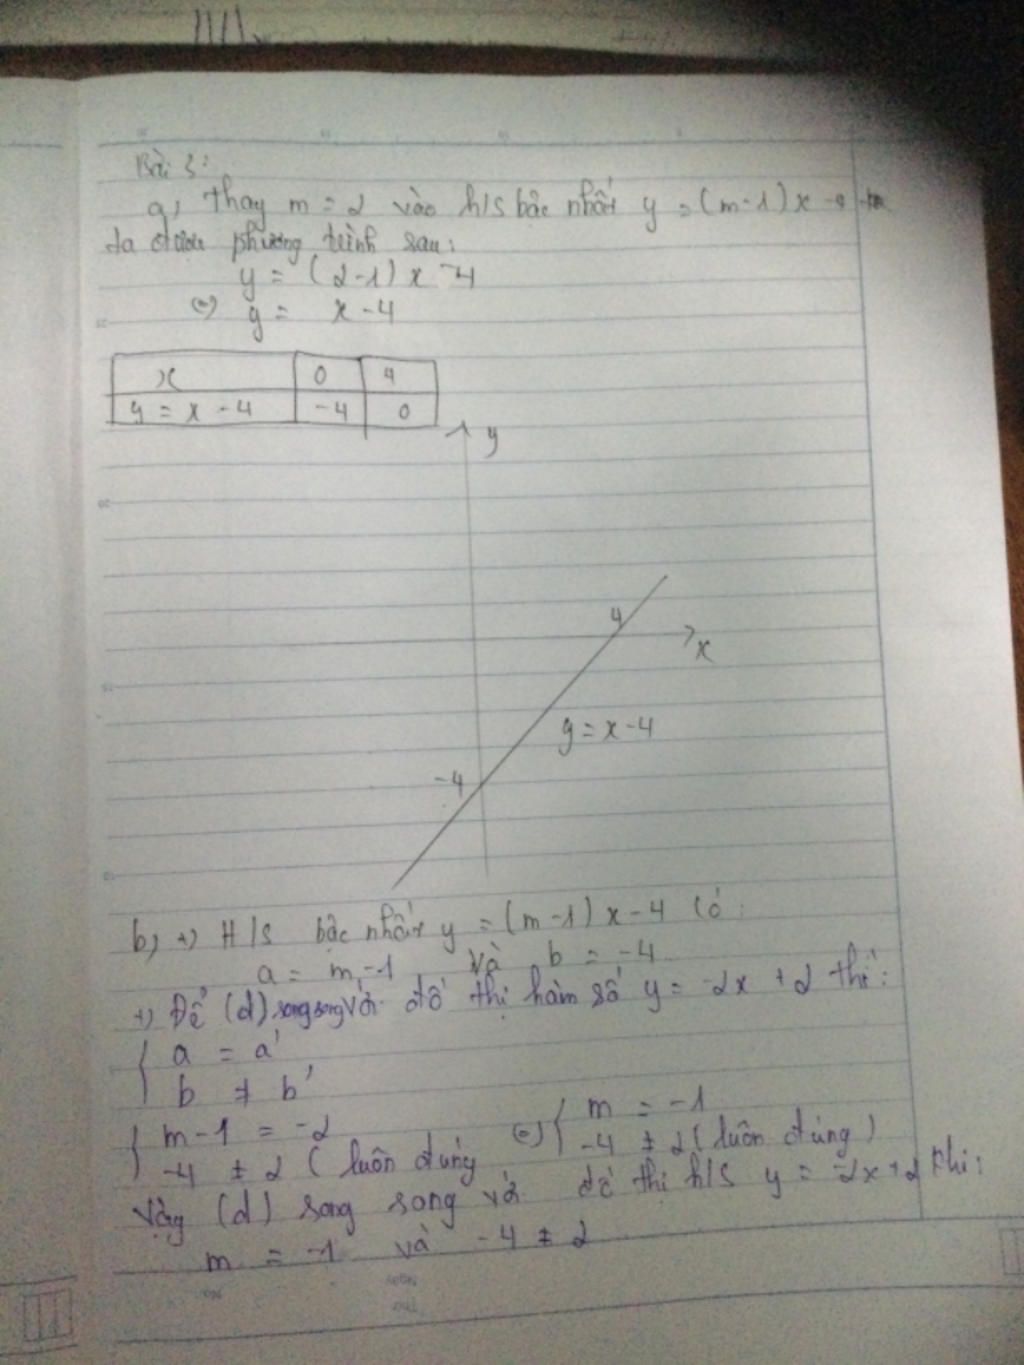 Bài 3:
a, Thay m = 2 vào h/s bậc nhất y = (m-1)x - 4
ta được phương trình sau:
y = (2-1) x -4
(=) y = x - 4
x 0 4
y = x - 4 -4 0
y
4
x
y = x - 4
-4
b, +) H/S bậc nhất y = (m-1) x - 4 Có :
a = m -1 và b = -4
+) Để (d) song song với đồ thị hàm số y = -2x + 2 thì:
{ a = a'
b ≠ b'
{ m-1 = -2 (=) { m = -1
-4 ≠ 2 ( luôn đúng -4 ≠ 2 ( luôn đúng )
Vậy (d) song song với đồ thị h/s y = -2x + 2 khi:
m = -1 và -4 ≠ 2